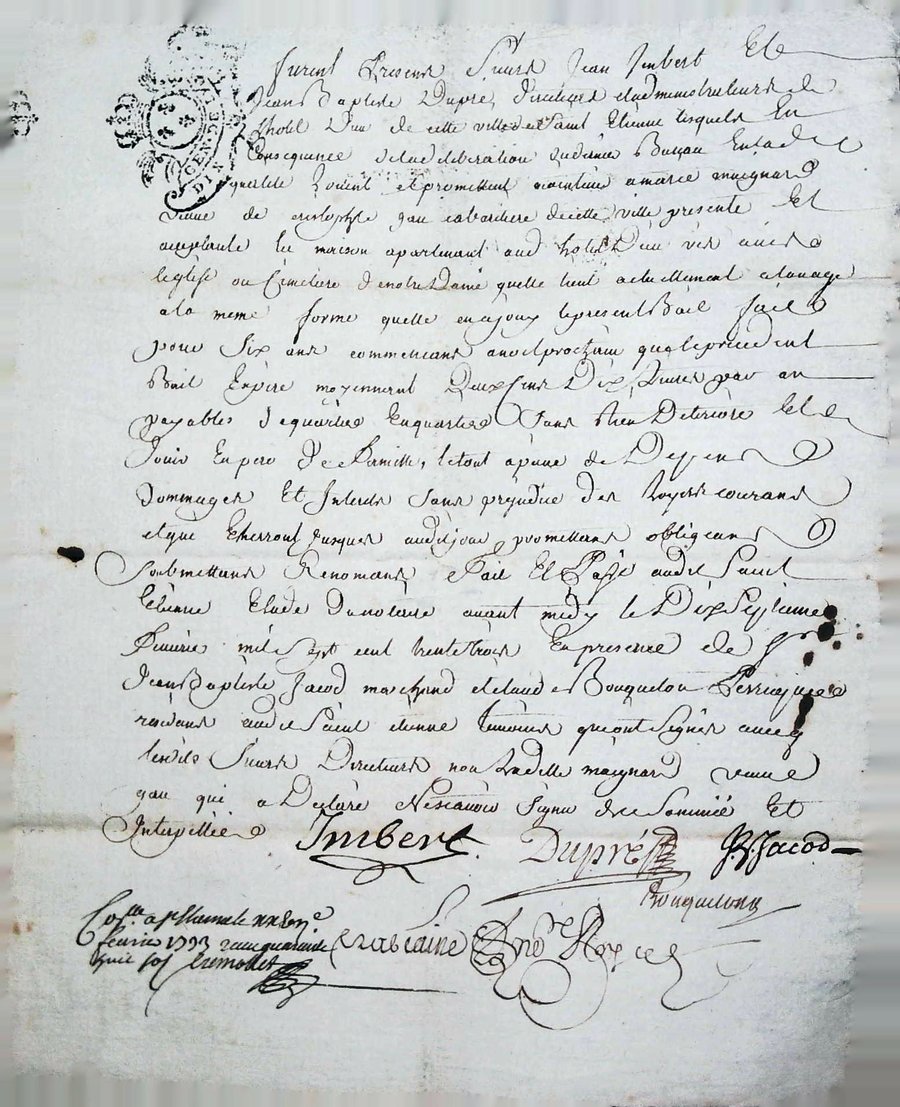 GEN DE
DIX
furent Presens Sieurs Jean Imbert Et
Jean Baptiste Dupré, directeurs et administrateurs de
lhotel Dieu de cette ville de Saint Etienne lesquels En
Consequence de la deliberation du dernier Bureau En lad
qualité et promettent maintenir a marie maignard
veuve de cristophle gau cabartiere de cette ville presente Et
acceptante la maison apartenant aud hotel Dieu
leglise ou Cimetiere de notre Dame quelle tient actuellement a louage
a la meme forme quelle en a jouy le present Bail fait
pour six ans commencans a noel prochain que le precedent
Bail Expire moyennent Deux Cens Dix Livres par an
payables de quartier En quartier Sans Rien Deteriorer Et
Jouir En pere De famille, le tout a peine de Depens
Dommages Et Interets sans prejudice des Loyers courans
et que jusques audit jour promettans obligeans
Soubmettans Renoncans Fait Et Passé audit Saint
Etienne Etude du notaire avant midy le Dix Septieme
Fevrier mil Sept cent trente trois En presence de Sr
Jean Baptiste Jacod marchand et claude Bouquelon Perruquier
audit Saint etienne temoins qui ont Signés avec
lesdits Sieurs Directeurs non laditte maignard veuve
gau qui a Declaré ne Scavoir Signer de ce Sommée Et
Interpellée
Imbert
Dupré
J B Jacod
Bouquelon
Collé a St Etienne le
fevrier 1733 quarante
huit sols